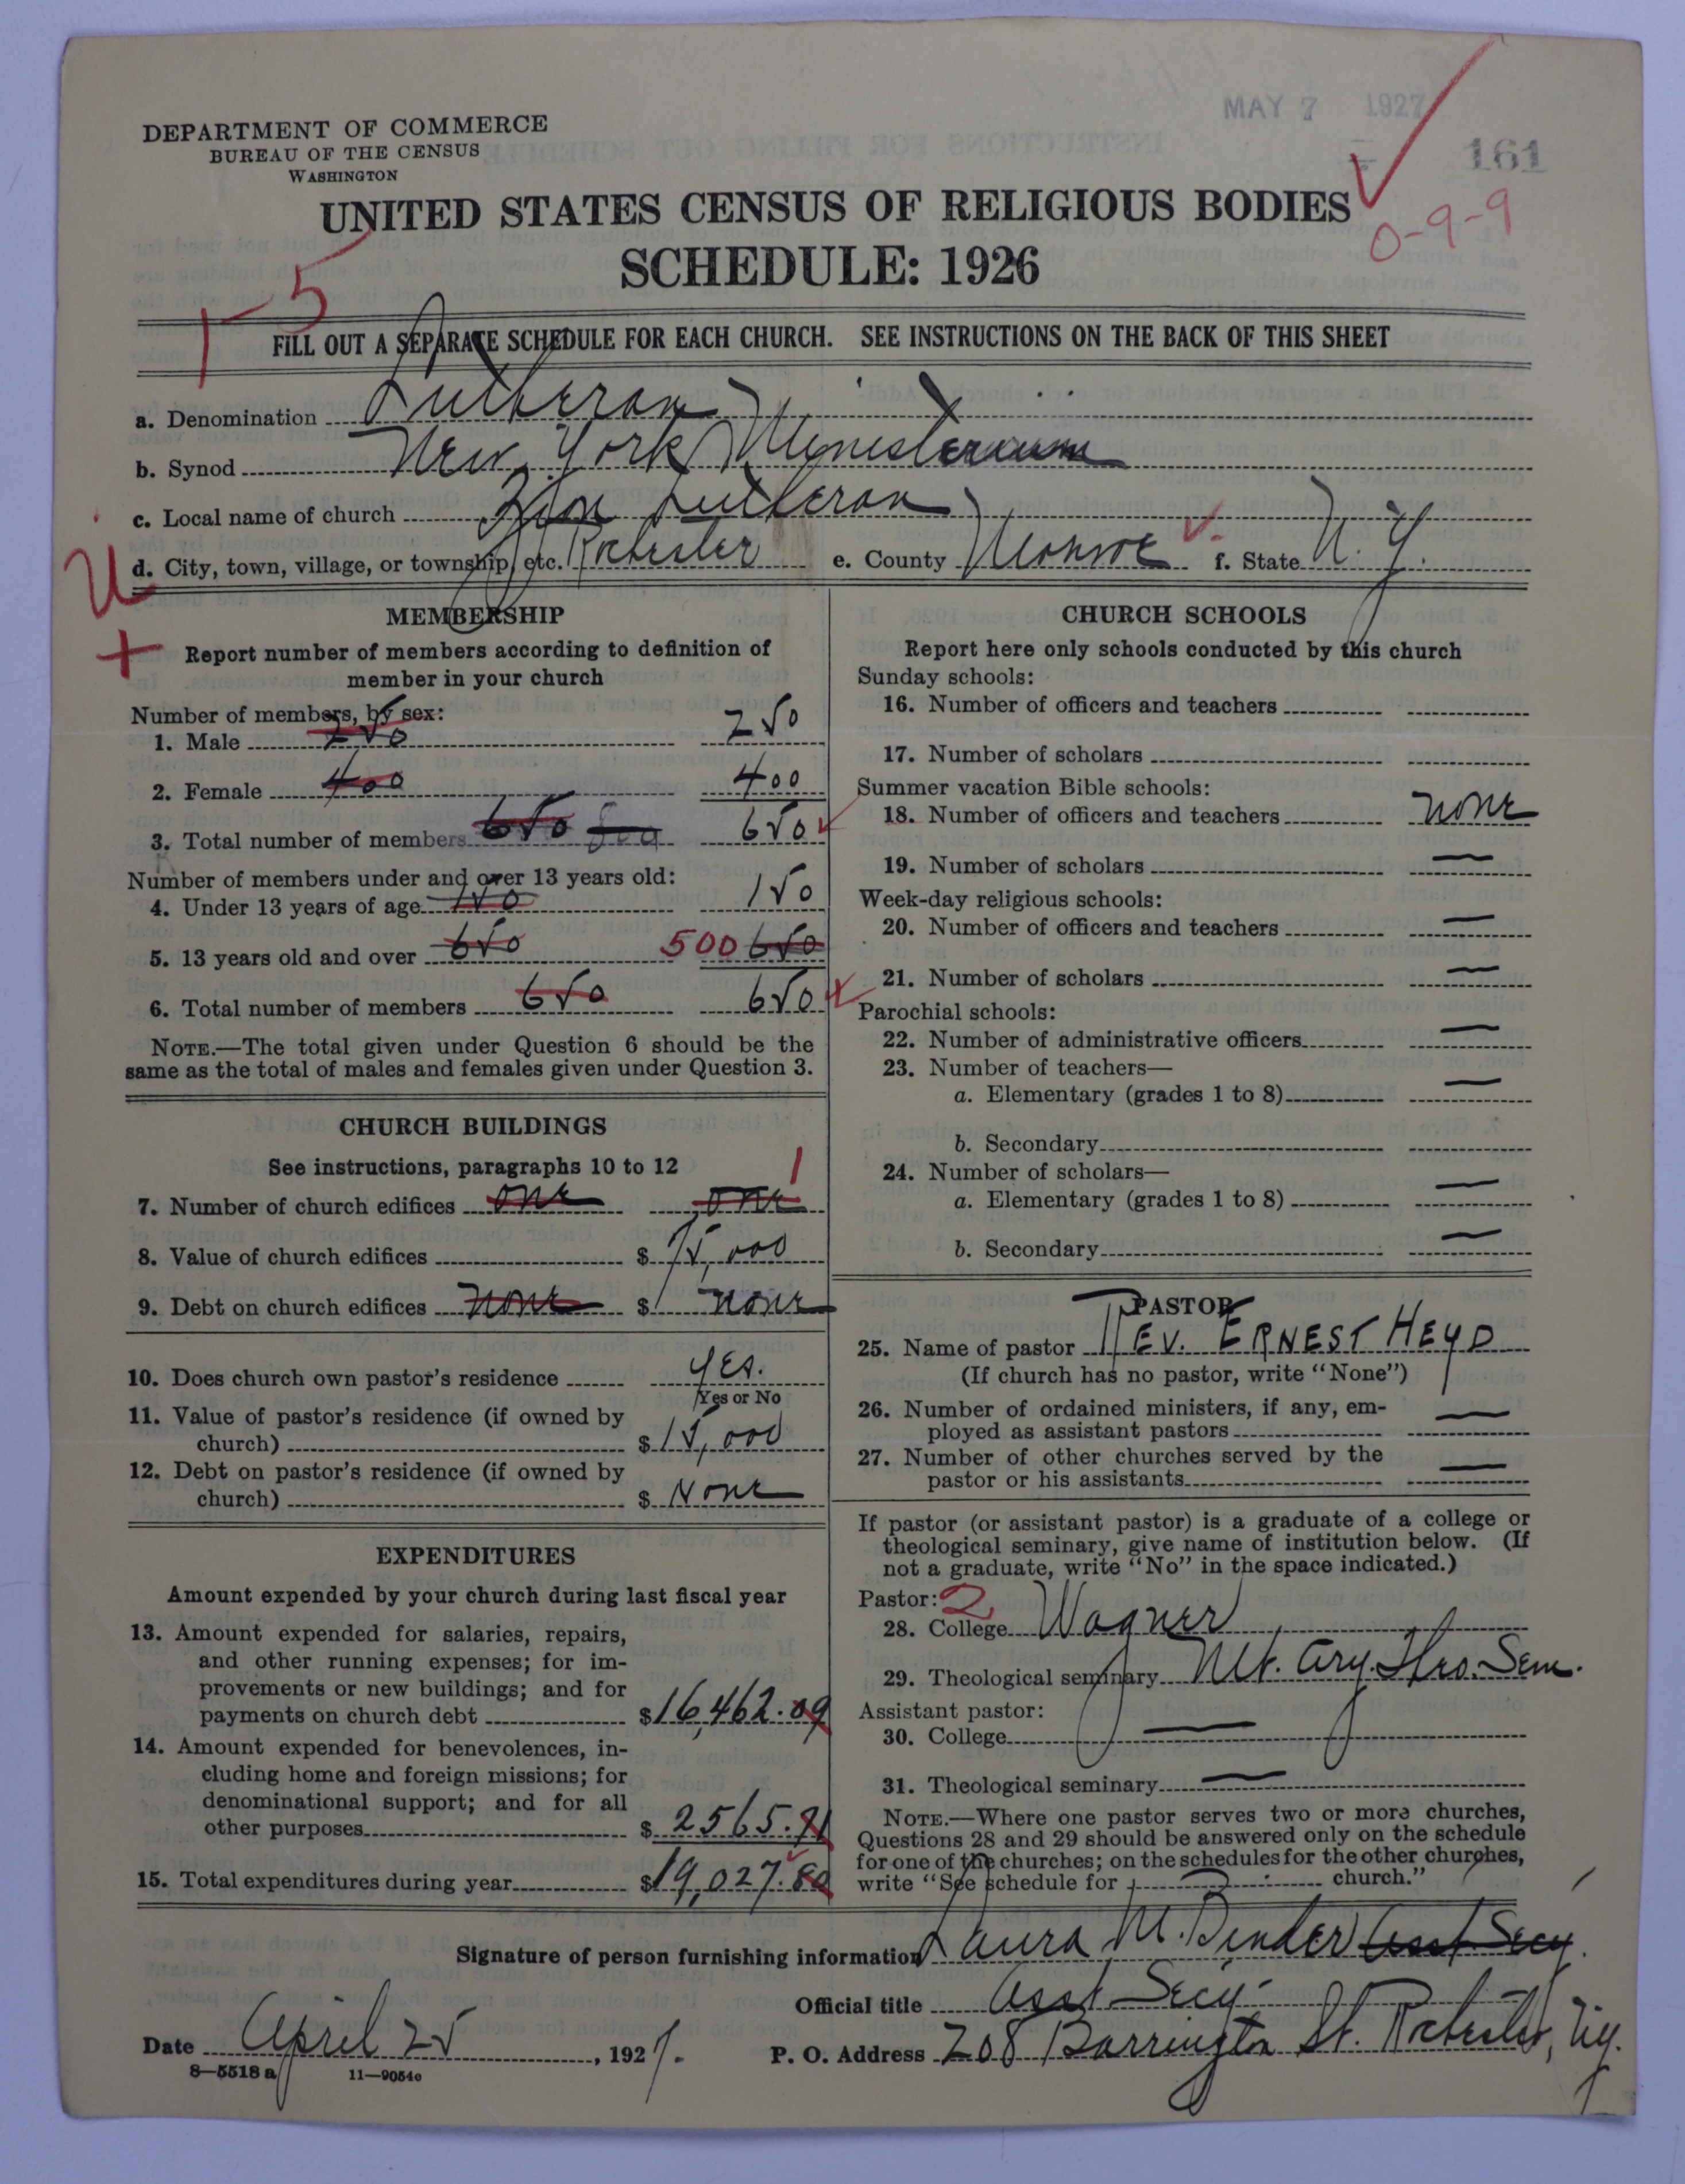 MAY 7 1927
161
DEPARTMENT OF COMMERCE
BUREAU OF THE CENSUS
WASHINGTON
UNITED STATES CENSUS OF RELIGIOUS BODIES
0-9-9
SCHEDULE: 1926
1-5
FILL OUT A SEPARATE SCHEDULE FOR EACH CHURCH. SEE INSTRUCTIONS ON THE BACK OF THIS SHEET
a. Denomination Lutheran
b. Synod New York Ministerium
c. Local name of church Zion Lutheran
d. City, town, village, or township, etc. Rochester e. County Monroe f. State N. Y.
U
+
MEMBERSHIP
Report number of members according to definition of
member in your church
Number of members, by sex:
1. Male 250 250
2. Female 400 400
3. Total number of members 650 800 650
Number of members under and over 13 years old:
4. Under 13 years of age 150 150
5. 13 years old and over 650 500 650
6. Total number of members 650 650
NOTE.—The total given under Question 6 should be the
same as the total of males and females given under Question 3.
CHURCH BUILDINGS
See instructions, paragraphs 10 to 12
7. Number of church edifices one one 1
8. Value of church edifices $ 75,000
9. Debt on church edifices none $ none
10. Does church own pastor's residence yes.
Yes or No
11. Value of pastor's residence (if owned by
church) $ 15,000
12. Debt on pastor's residence (if owned by
church) $ None
EXPENDITURES
Amount expended by your church during last fiscal year
13. Amount expended for salaries, repairs,
and other running expenses; for im-
provements or new buildings; and for
payments on church debt $16,462.09
14. Amount expended for benevolences, in-
cluding home and foreign missions; for
denominational support; and for all
other purposes $ 2565.71
15. Total expenditures during year $19,027.80
CHURCH SCHOOLS
Report here only schools conducted by this church
Sunday schools:
16. Number of officers and teachers
17. Number of scholars
Summer vacation Bible schools:
18. Number of officers and teachers none
19. Number of scholars —
Week-day religious schools:
20. Number of officers and teachers —
21. Number of scholars —
Parochial schools:
22. Number of administrative officers —
23. Number of teachers—
a. Elementary (grades 1 to 8) —
b. Secondary
24. Number of scholars—
a. Elementary (grades 1 to 8) —
b. Secondary —
PASTOR
25. Name of pastor REV. ERNEST HEYD
(If church has no pastor, write "None")
26. Number of ordained ministers, if any, em-
ployed as assistant pastors —
27. Number of other churches served by the
pastor or his assistants —
If pastor (or assistant pastor) is a graduate of a college or
theological seminary, give name of institution below. (If
not a graduate, write "No" in the space indicated.)
Pastor: 2
28. College Wagner
29. Theological seminary Mt. Airy. Theo. Sem.
Assistant pastor:
30. College —
31. Theological seminary —
NOTE.—Where one pastor serves two or more churches,
Questions 28 and 29 should be answered only on the schedule
for one of the churches; on the schedules for the other churches,
write "See schedule for — church."
Signature of person furnishing information Laura M. Binder Asst. Secy.
Official title Asst Secy.
Date April 25, 1927. P. O. Address 208 Barrington St. Rochester, N.Y.
8—5518 a 11—9054c